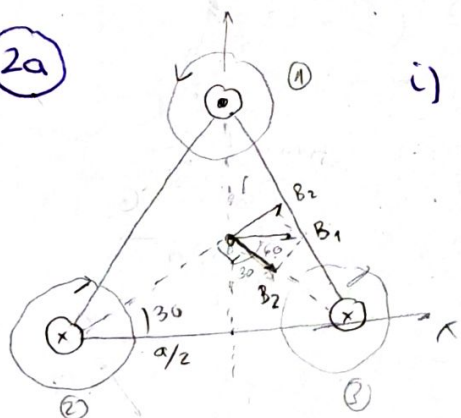 2a
①
i)
r
B₂
B₁
60
30
B₂
30
a/2
x
②
③